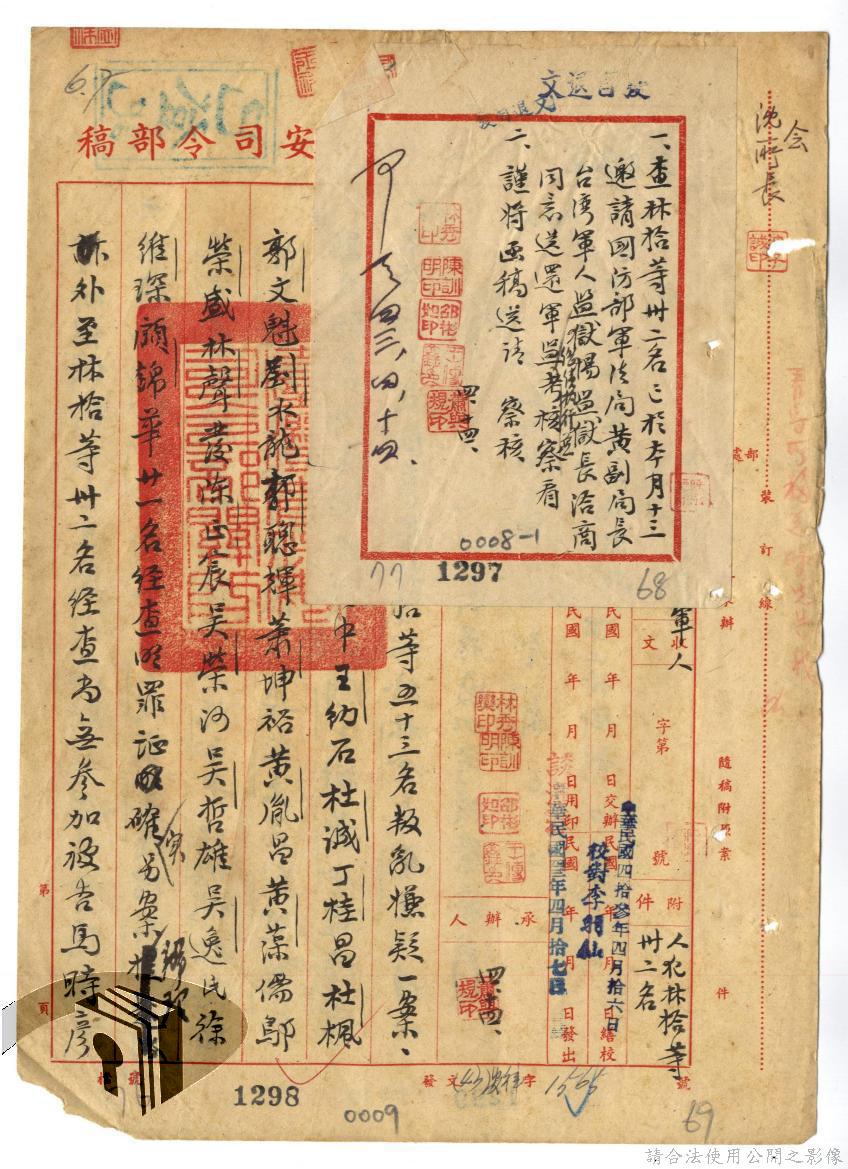 安司令部稿
發 後退文
一、查林拾等卅二名已於本月十三
邀請國防部軍法局黃副局長
台灣軍人監獄楊監獄長洽商
同意送還軍監考核察看
二、謹將函稿送請 察核
四、十四、
四三、四、十四、
0008-1
77
1297
68
会
沈處長
裝訂線
隨稿附原案
件
軍人
收文
字第
號
附件
人犯林拾等
卅二名
民國 年 月 日交辦
民國 年 月 日繕校
民國 年 月 日用印
民國 年 月 日發出
中華民國四拾參年四月拾六日
校對李羽仙
中華民國四三年四月拾七日
承辦人
四、十四、
拾等五十三名叛亂嫌疑一案、
中王幼石杜誠丁桂昌杜楓
郭文魁劉水龍郭聰輝蕭坤裕黃胤昌黃藻儒鄔
榮盛林聲發陳正宸吳榮河吳哲雄吳逸民徐
維琛顏錦華廿一名經查明罪証確實另案
訴外至林拾等卅二名經查尚無參加被告馬時彥
第
頁
檔號
發文
字
號
1298
0009
69
請合法使用公開之影像